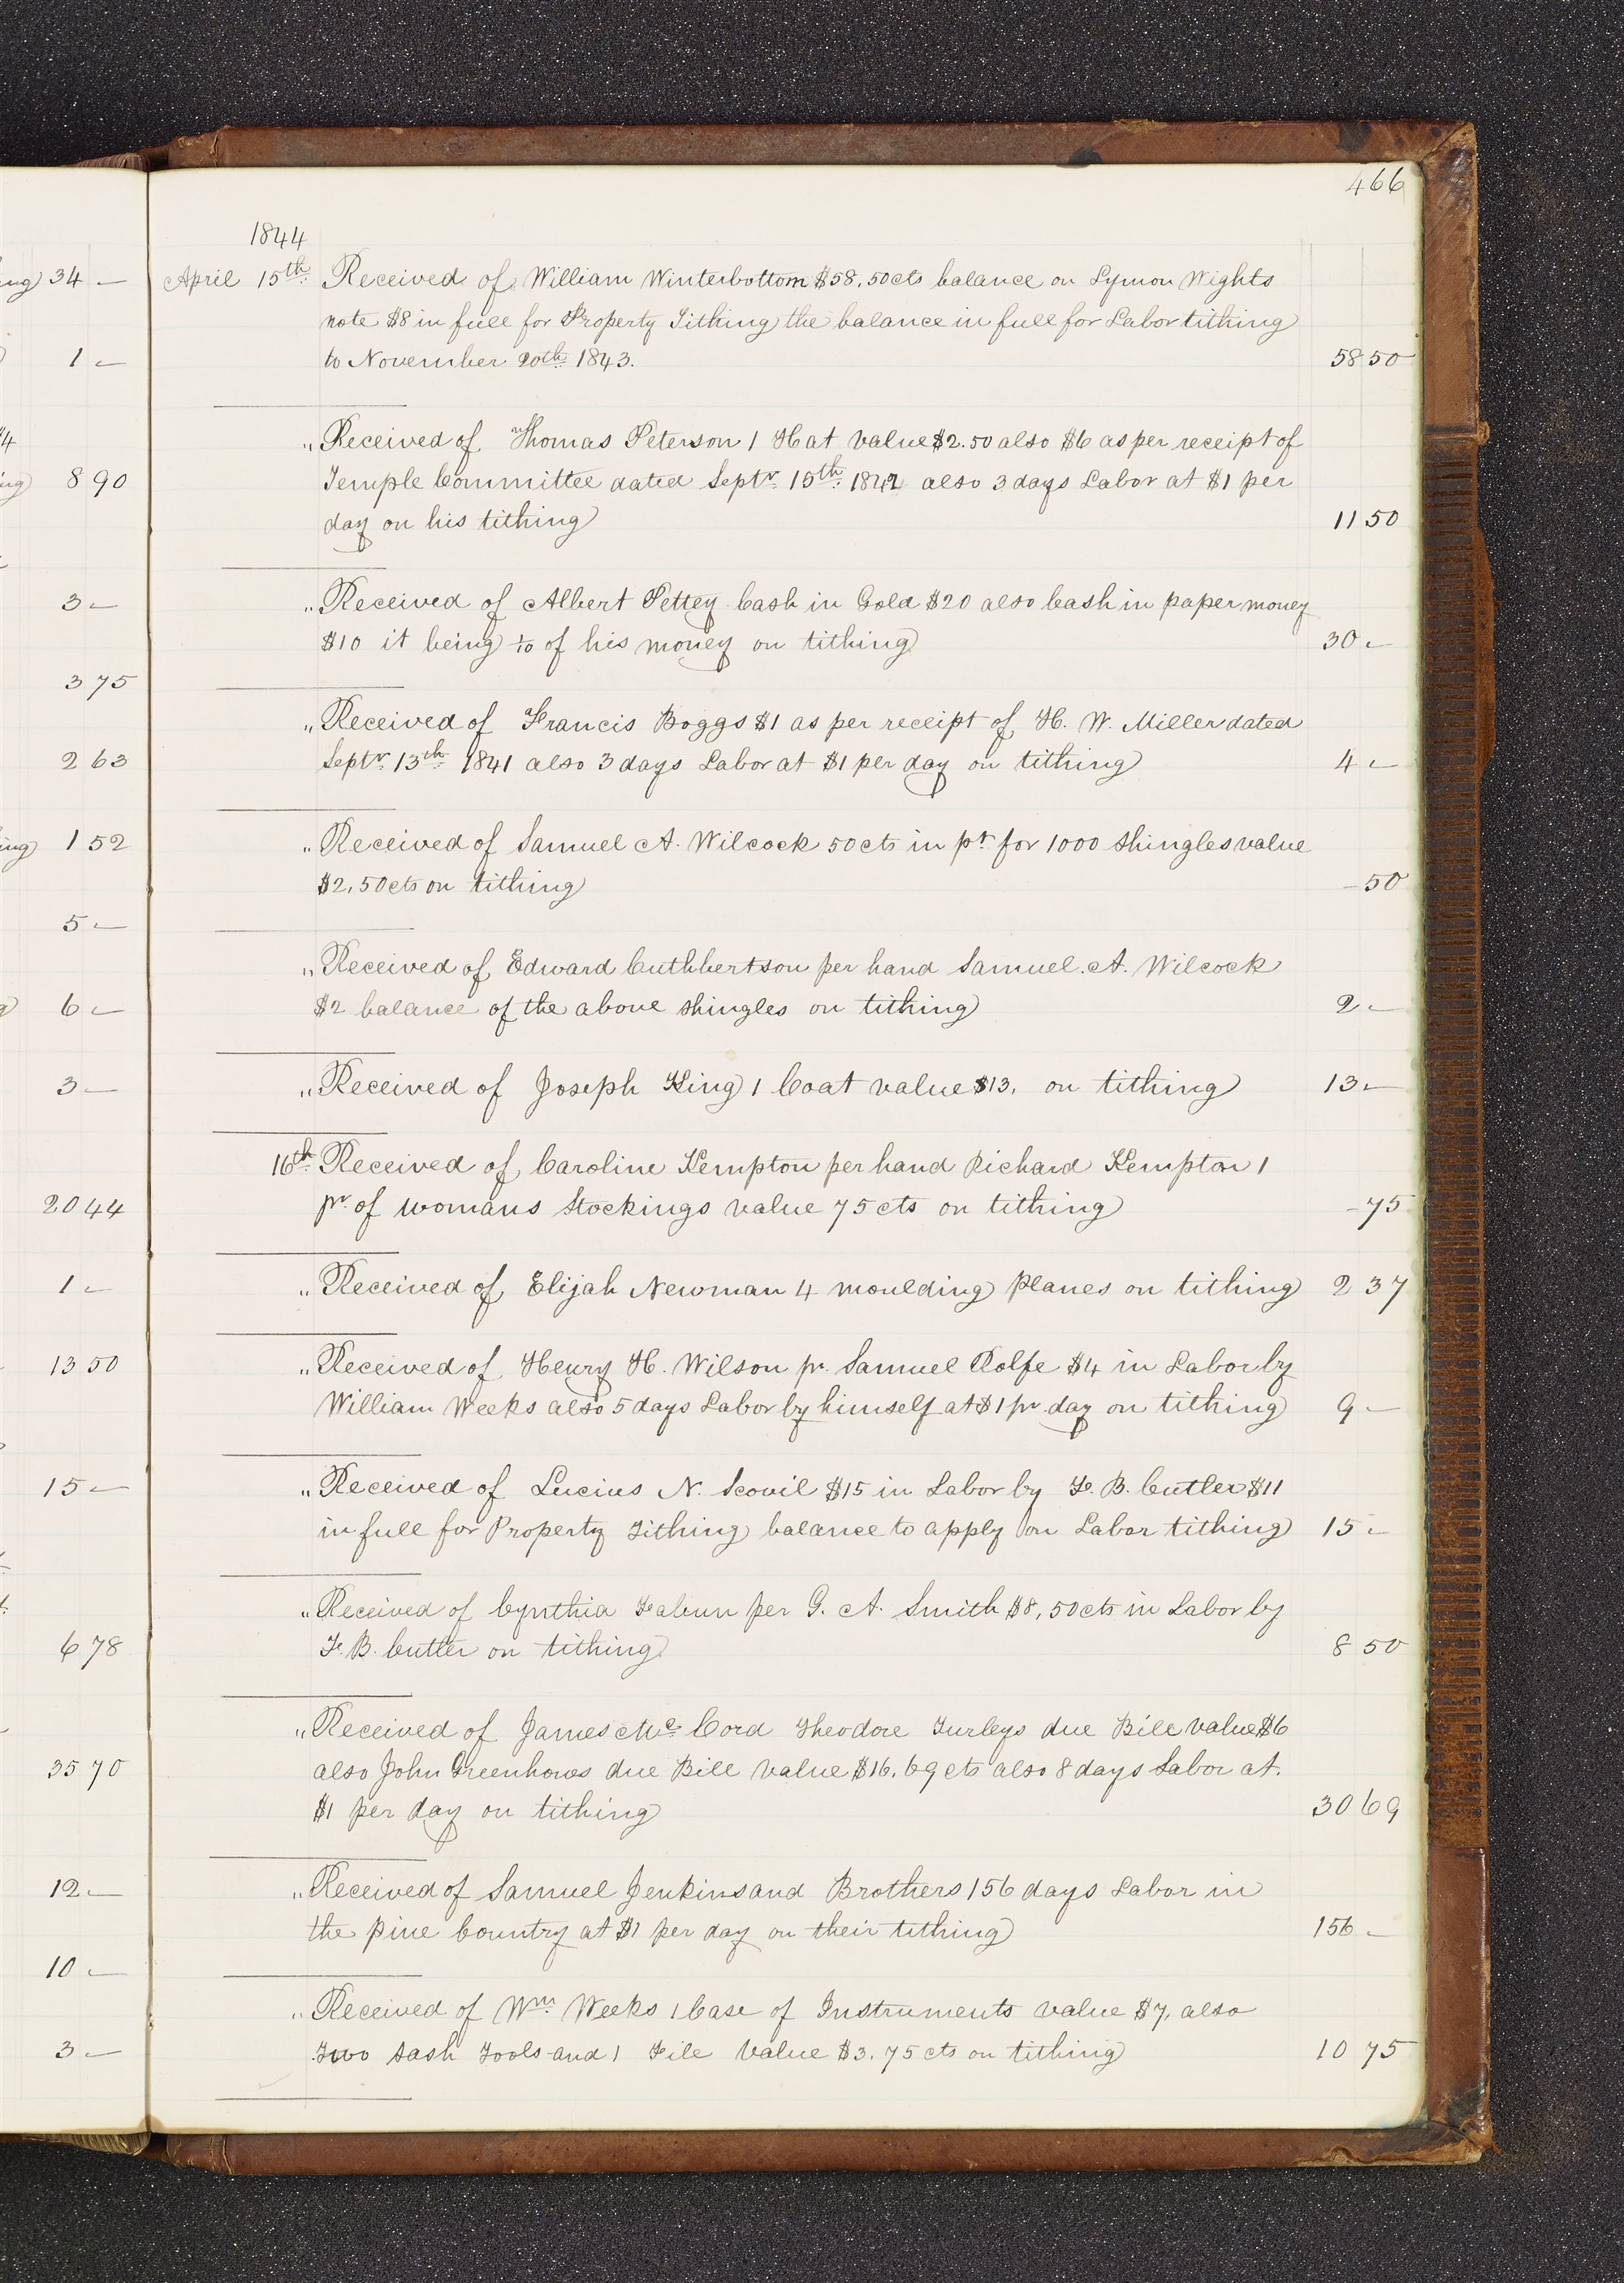 466
1844
April 15th Received of William Winterbottom $58,50cts balance on Lymon Wights
note $8 in full for Property Tithing the balance in full for Labor tithing
to November 20th 1843. 58 50
" Received of Thomas Peterson 1 Hat value $2.50 also $6 as per receipt of
Temple Committee dated Septr 15th 1842 also 3 days Labor at $1 per
day on his tithing 11 50
" Received of Albert Pettey Cash in Gold $20 also Cash in paper money
$10 it being 1/10 of his money on tithing 30 -
" Received of Francis Boggs $1 as per receipt of H. W. Miller dated
Septr 13th 1841 also 3 days Labor at $1 per day on tithing 4 -
" Received of Samuel A. Wilcock 50cts in pt for 1000 Shingles value
$2,50cts on tithing - 50
" Received of Edward Cuthbertson per hand Samuel. A. Wilcock
$2 balance of the above shingles on tithing 2 -
" Received of Joseph King 1 Coat value $13, on tithing 13 -
16th Received of Caroline Kempton per hand Richard Kempton 1
pr of womans Stockings value 75 cts on tithing - 75
" Received of Elijah Newman 4 moulding planes on tithing 2 37
" Received of Henry H. Wilson pr. Samuel Rolfe $4 in Labor by
William Weeks also 5 days Labor by himself at $1 pr day on tithing 9 -
" Received of Lucius N. Scovil $15 in Labor by F. B. Cutler $11
in full for Property Tithing balance to apply on Labor tithing 15 -
" Received of Cynthia Fabun per G. A. Smith $8,50cts in Labor by
F. B. Cutler on tithing 8 50
" Received of James Mc Cord Theodore Turleys due Bill value $6
also John Greenhows due Bill value $16,69 cts also 8 days Labor at
$1 per day on tithing 30 69
" Received of Samuel Jenkins and Brothers 156 days Labor in
the pine Country at $1 per day on their tithing 156 -
" Received of Wm Weeks 1 Case of Instruments value $7, also
Two Sash Tools and 1 File value $3,75 cts on tithing 10 75
34 -
1 -
8 90
3 -
3 75
2 63
1 52
5 -
6 -
3 -
20 44
1 -
13 50
15 -
6 78
35 70
12 -
10 -
3 -